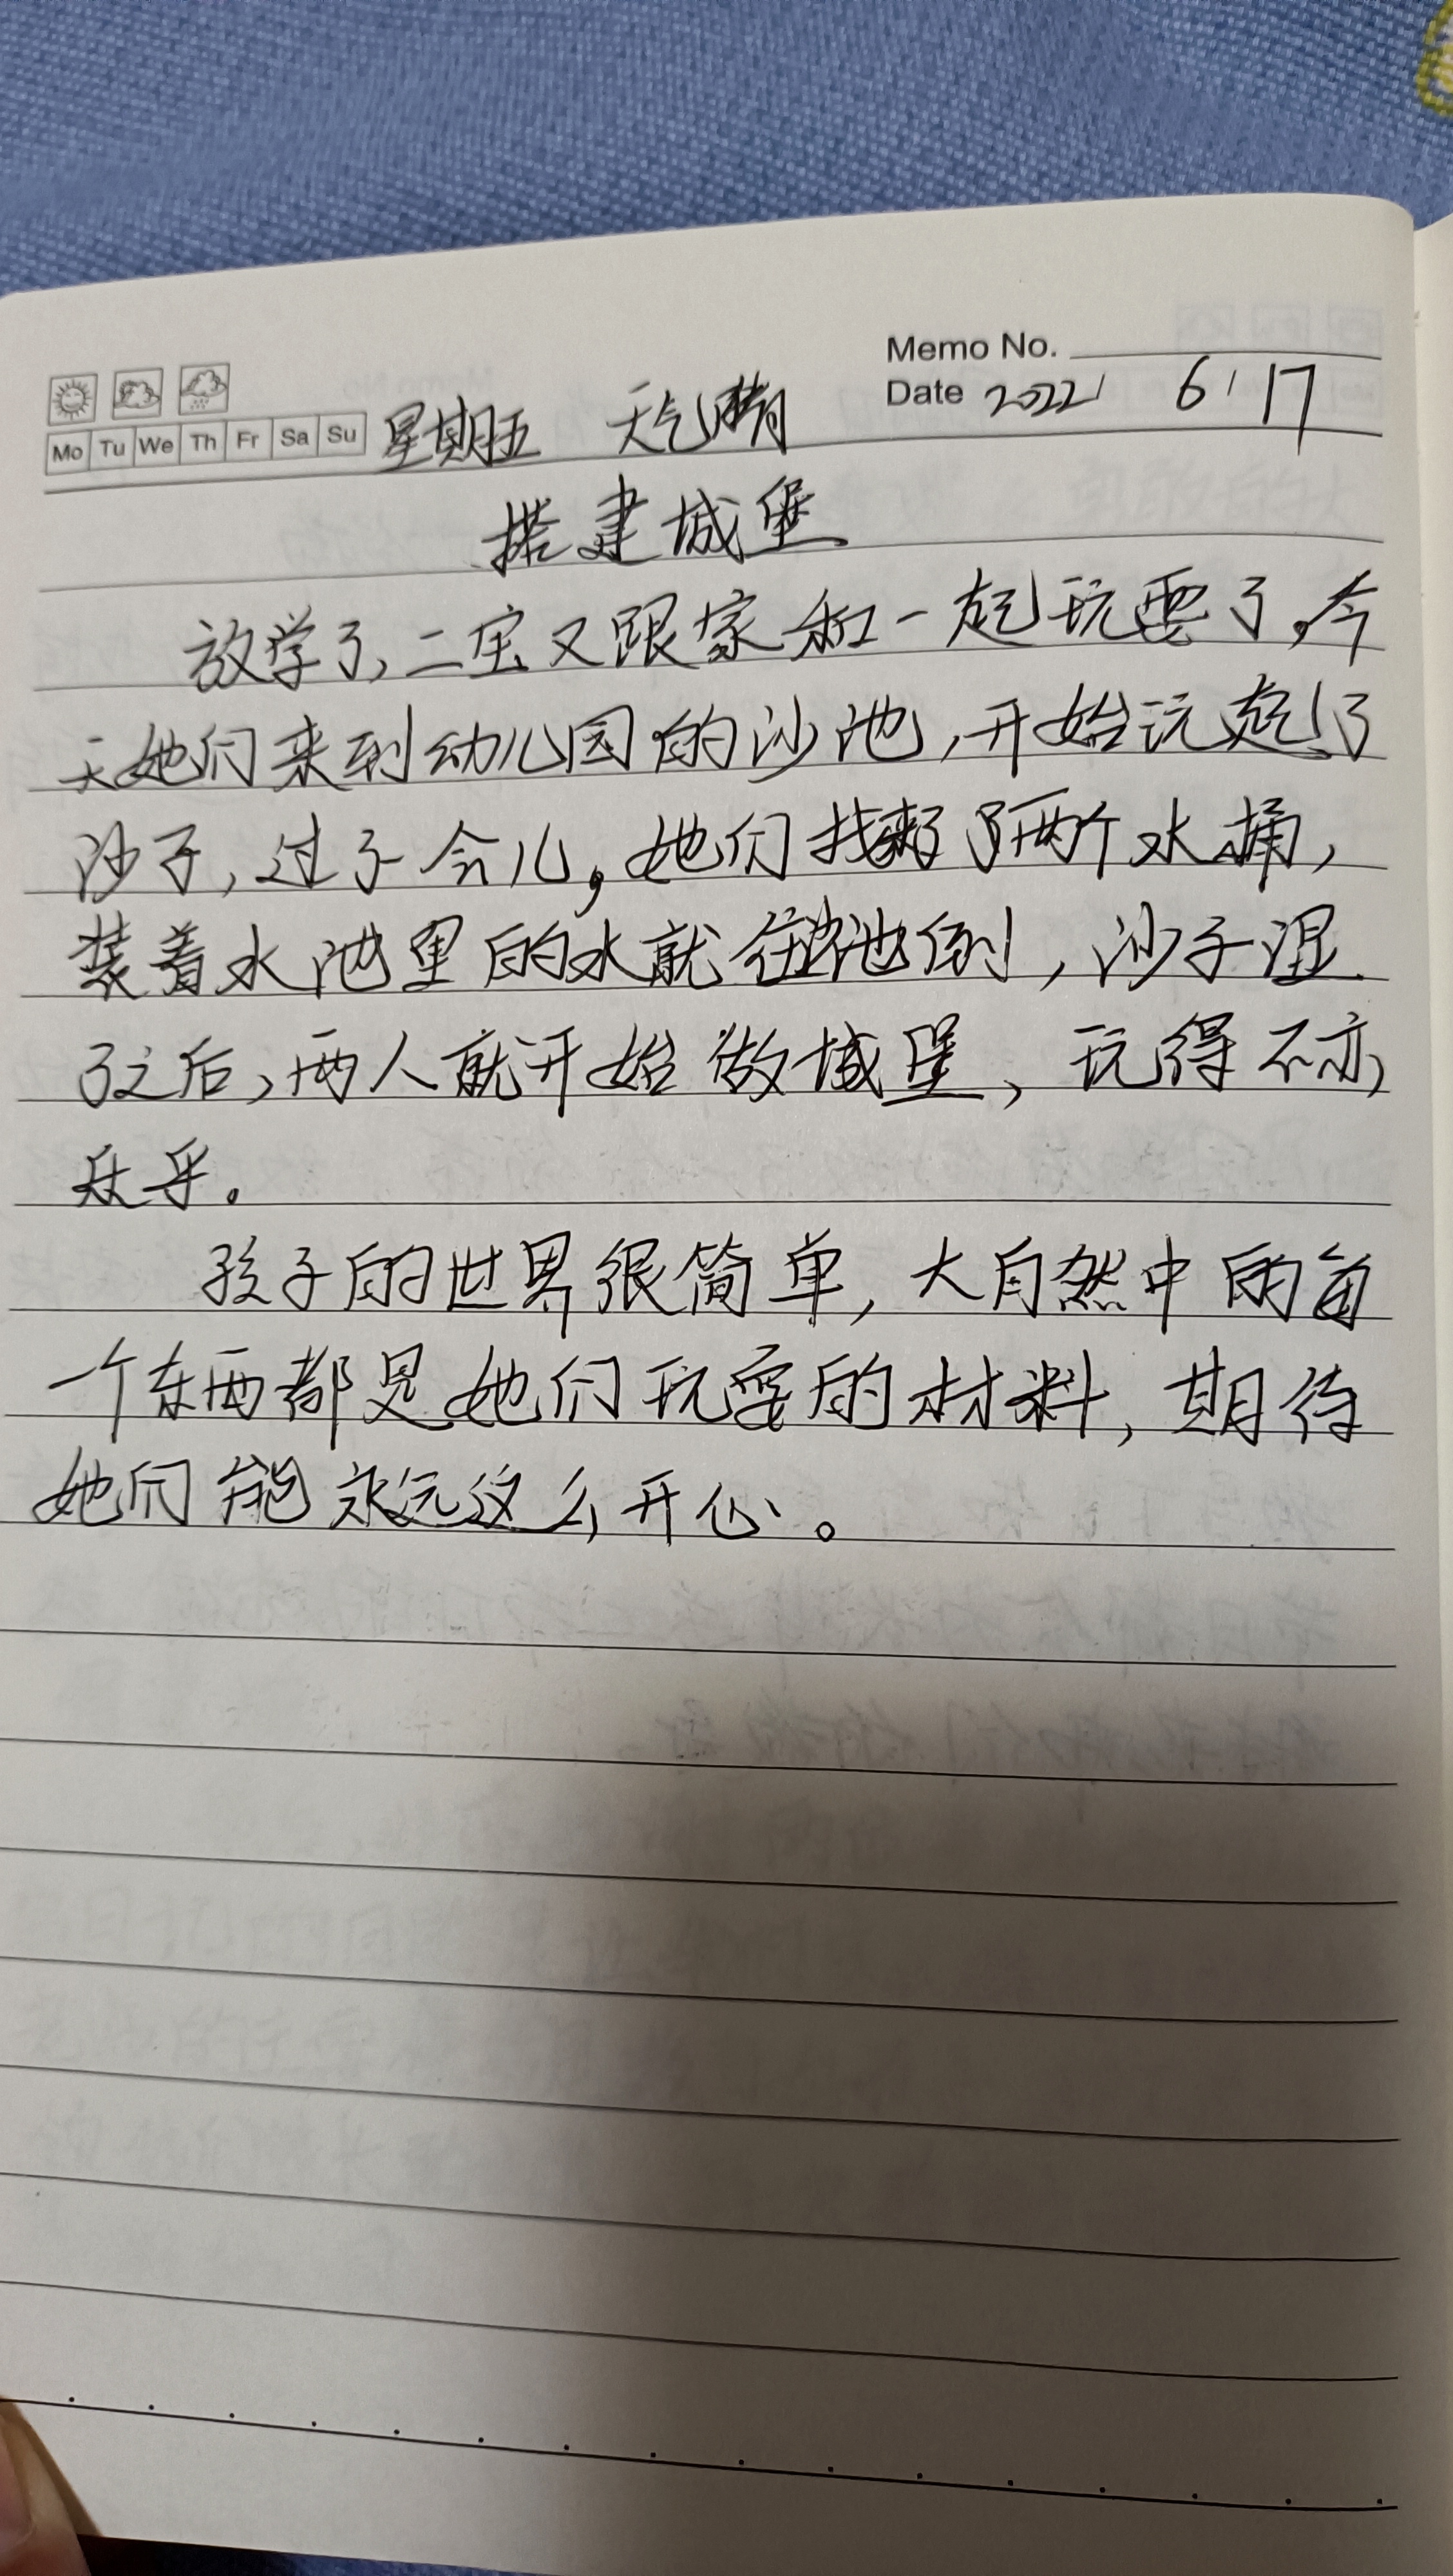 Memo No.
Date 2022 6 17
Mo Tu We Th Fr Sa Su 星期五 天气晴
搭建城堡
放学了,二宝又跟家和一起玩耍了。今
天她们来到幼儿园的沙池,开始玩起了
沙子,过了会儿,她们找来了两个水桶,
装着水池里的水就往池倒,沙子湿
了之后,两人就开始做城堡,玩得不亦
乐乎。
孩子的世界很简单,大自然中的每
个东西都是她们玩耍的材料,期待
她们能永远这么开心。